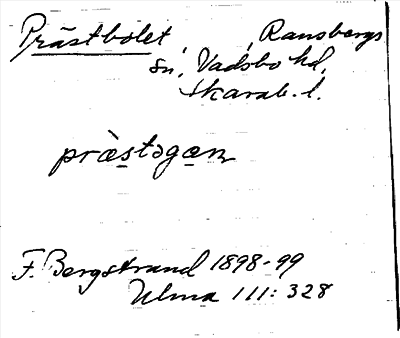 Prästbolet, Ransbergs
sn, Vadsbo hd,
Skarab. l.
præ̀stəgən
F. Bergstrand 1898-99
Ulma 111:328